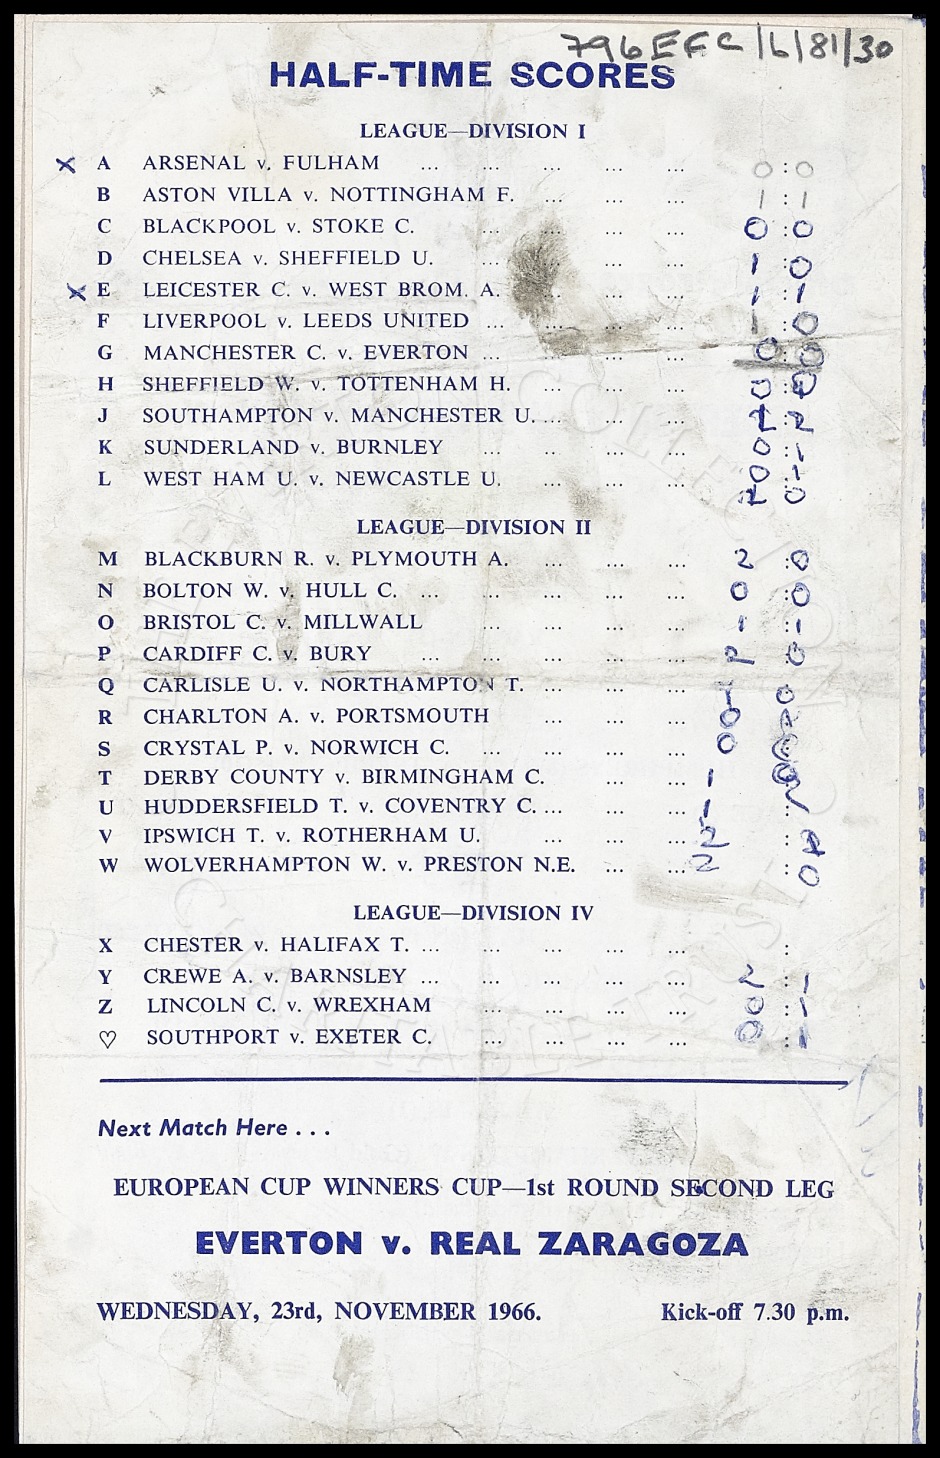 796 EFC/6/81/30
HALF-TIME SCORES
LEAGUE—DIVISION I
X A ARSENAL v. FULHAM ... ... ... ... ... 0 : 0
B ASTON VILLA v. NOTTINGHAM F. ... ... ... 1 : 1
C BLACKPOOL v. STOKE C. ... ... ... ... 0 : 0
D CHELSEA v. SHEFFIELD U. ... ... ... 1 : 0
X E LEICESTER C. v. WEST BROM. A. ... ... ... 1 : 1
F LIVERPOOL v. LEEDS UNITED ... ... ... ... 1 : 0
G MANCHESTER C. v. EVERTON ... ... ... 0 : 0
H SHEFFIELD W. v. TOTTENHAM H. ... ... ... 0 :
J SOUTHAMPTON v. MANCHESTER U. ... ... ... : 2
K SUNDERLAND v. BURNLEY ... ... ... ... 0 : 1
L WEST HAM U. v. NEWCASTLE U. ... ... ... 0 : 1
0
LEAGUE—DIVISION II
M BLACKBURN R. v. PLYMOUTH A. ... ... ... 2 : 0
N BOLTON W. v. HULL C. ... ... ... ... ... 0 : 0
O BRISTOL C. v. MILLWALL ... ... ... ... 1 : 1
P CARDIFF C. v. BURY ... ... ... ... ... : 0
Q CARLISLE U. v. NORTHAMPTON T. ... ... ... 1 0
R CHARLTON A. v. PORTSMOUTH ... ... ... 0
S CRYSTAL P. v. NORWICH C. ... ... ... ... 0
T DERBY COUNTY v. BIRMINGHAM C. ... ... 1
U HUDDERSFIELD T. v. COVENTRY C. ... ... ... 1 : 1
V IPSWICH T. v. ROTHERHAM U. ... ... ... 2 :
W WOLVERHAMPTON W. v. PRESTON N.E. ... ... 2 : 0
LEAGUE—DIVISION IV
X CHESTER v. HALIFAX T. ... ... ... ... ... :
Y CREWE A. v. BARNSLEY ... ... ... ... ... 2 : 1
Z LINCOLN C. v. WREXHAM ... ... ... ... 0 : 1
♡ SOUTHPORT v. EXETER C. ... ... ... ... 0 : 1
Next Match Here . . .
EUROPEAN CUP WINNERS CUP—1st ROUND SECOND LEG
EVERTON v. REAL ZARAGOZA
WEDNESDAY, 23rd, NOVEMBER 1966. Kick-off 7.30 p.m.